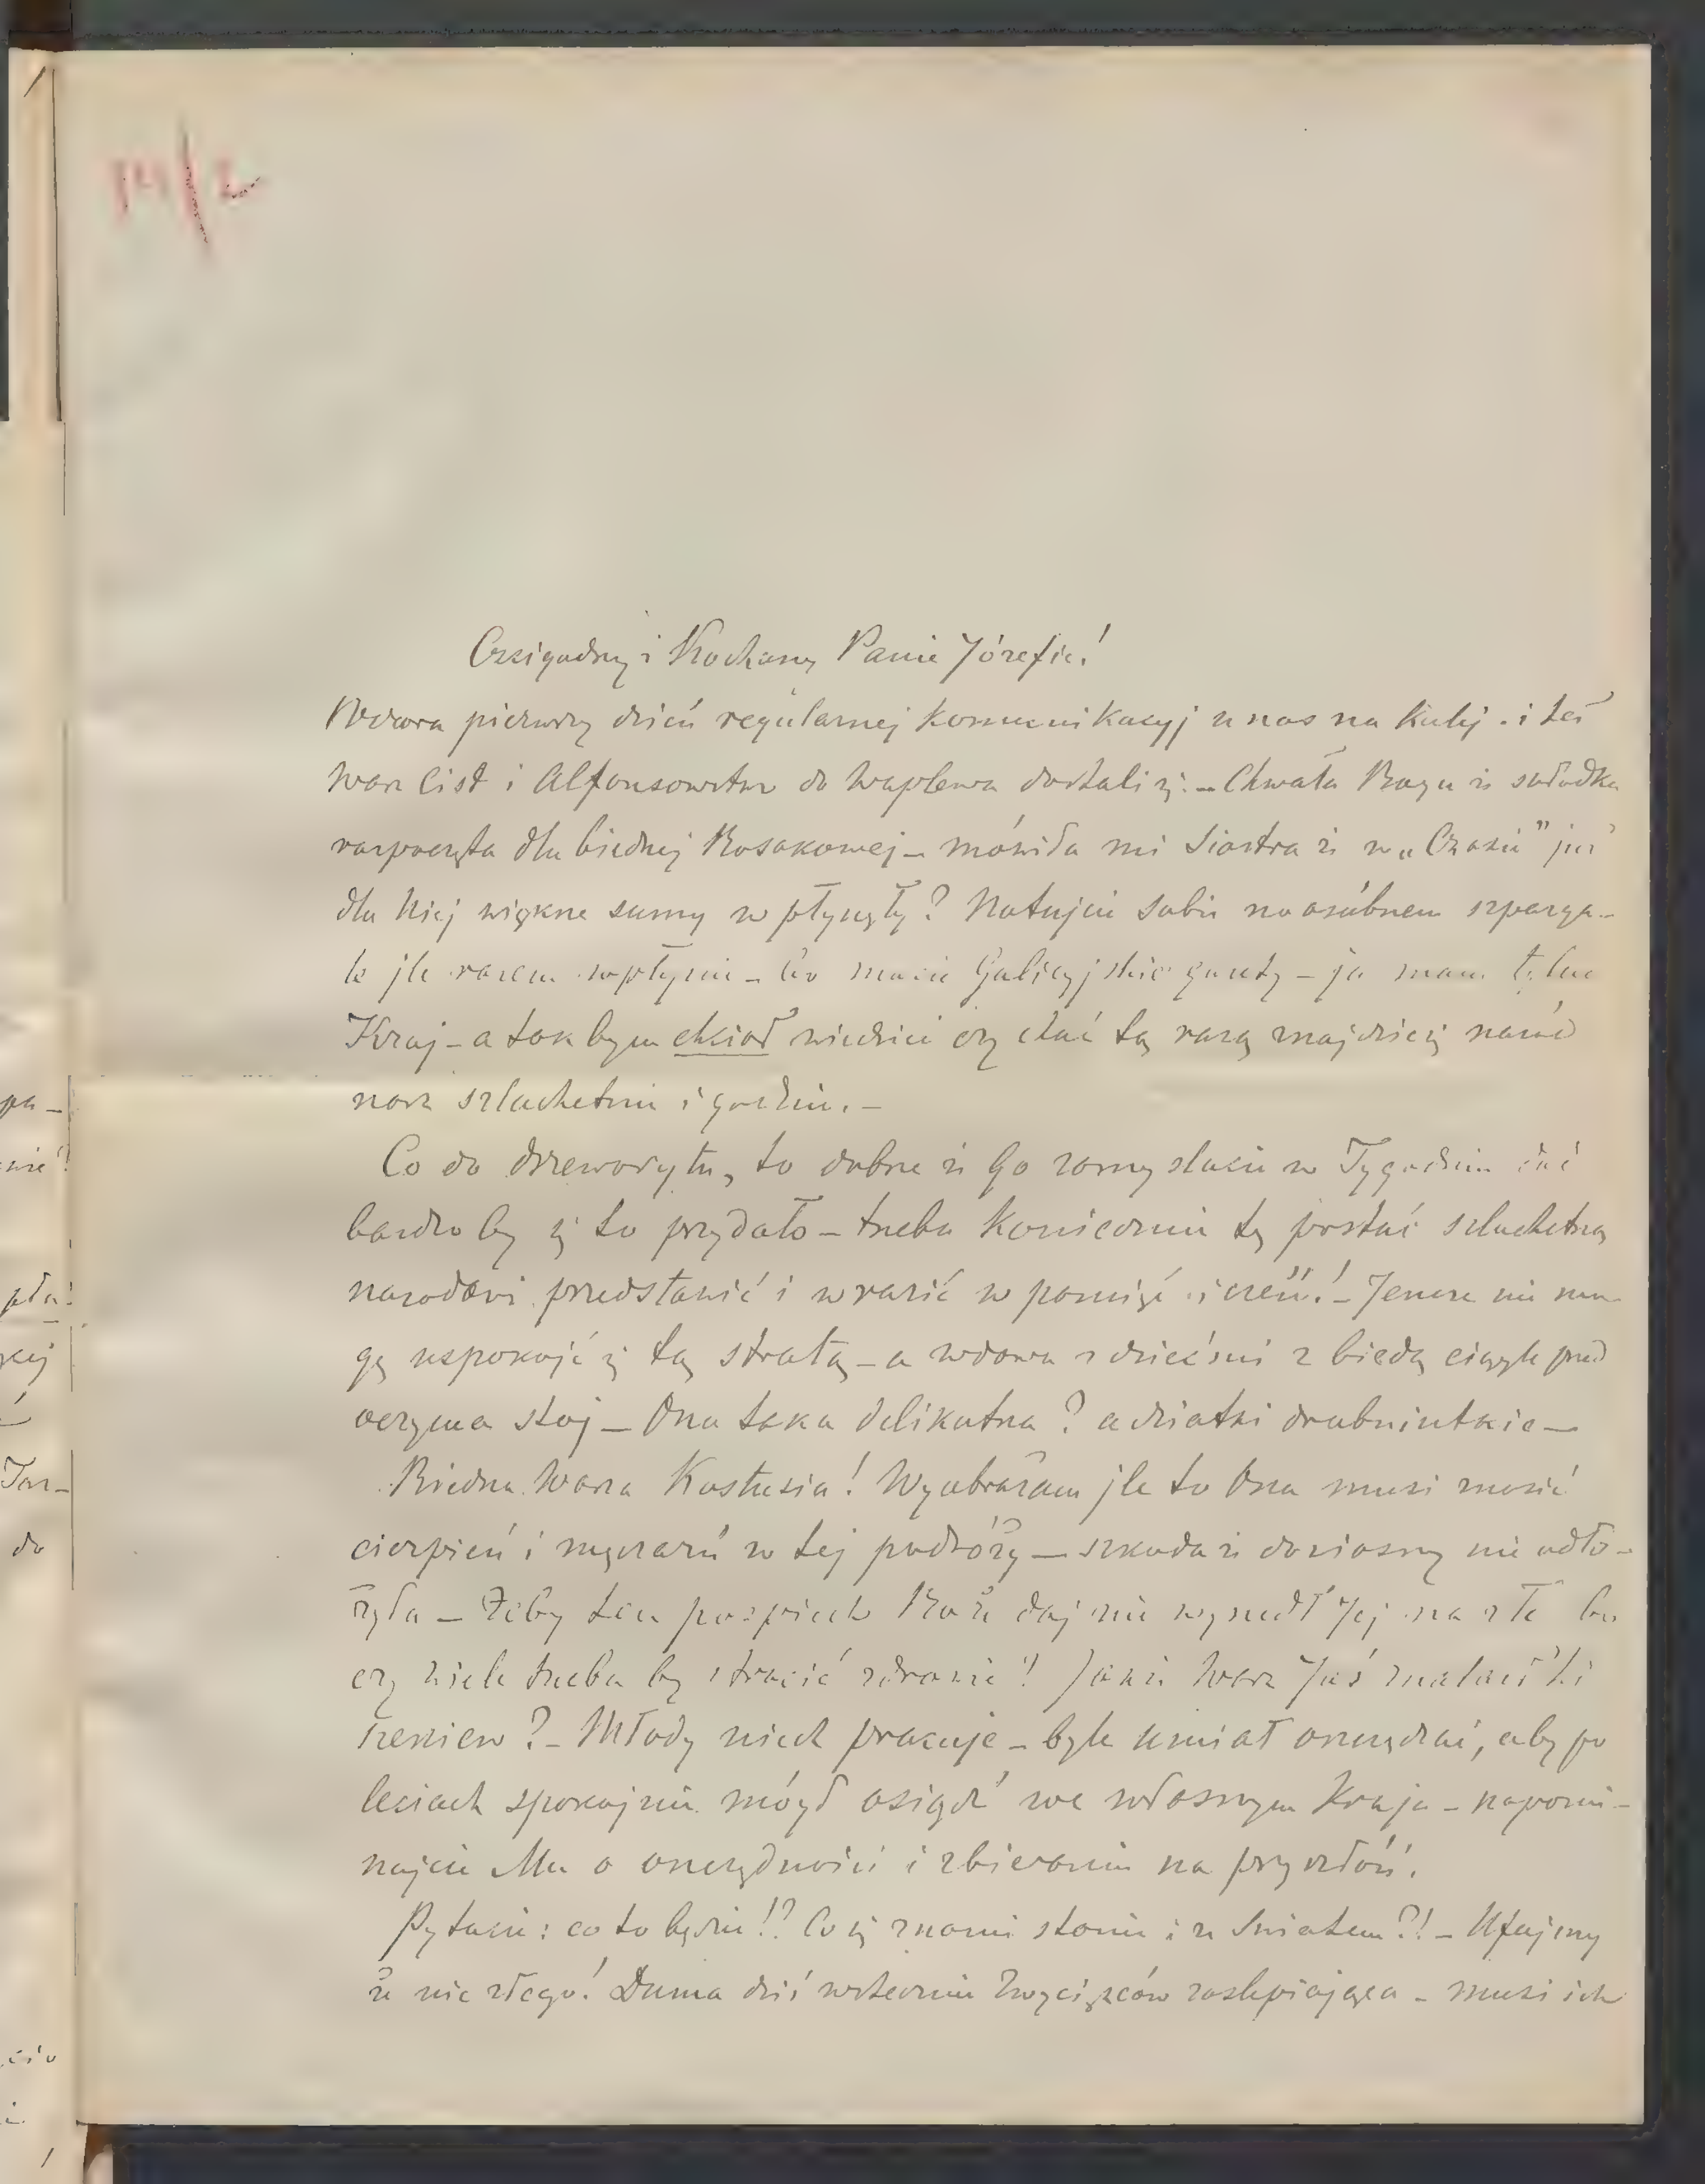 14/2
Czcigodny i Kochany Panie Józefie!
Wczora pierwszy dzień regularnej komunikacyj u nas na kolej. i też
Wasz list i Alfonsowstwo do Waplewa dostali się. – Chwała Bogu iż składka
rozpoczęta dla biednej Kosakowej – mówiła mi Siostra iż w „Czasie” już
dla Niej większe sumy w płynęły? Notujcie sobie na osóbnem szparga-
le jle razem wpłynie – bo macie Galicyjskie gazety – ja mam tylko
Kraj – a tak bym chciał wiedzieć czy choć tą razą znajdzie się naród
nasz szlachetnie i godnie. –
Co do drzeworytu, to dobrze iż Go zamyslacie w Tygodniu dać
bardzo by się to przydało – trzeba koniecznie tę postać szlachetną
narodowi przedstawić i wrazić w pamięć i cześć! – Jeszcze nie mo-
gę uspokojć się tą stratą – a wdowa z dziećmi z biedą ciągle przed
oczyma stoj – Ona taka delikatna? a dziatki drobniutkie –
Biedna Wasza Kostusia! Wyobrażam jle to Ona musi znosić
cierpień i męczarń w tej podróży – szkoda iż do wiosny nie odło-
żyła – żeby ten pospiech Boże daj nie wyszedł Jej na złe bo
czy wiele trzeba by stracić zdrowie! Jakie Wasz Jaś znalazł
? – Młody niech pracuje – byle umiał oszczędzać, aby po
leciach spokojnie mógł osiąść we własnym Kraju – napomi-
najcie Mu o oszczędności i zbieraniu na przyszłość.
Pytacie: co to będzie!? Co się z nami stanie i ze Swiatem?! – Ufajmy
iż nic złego! Duma dziś wstecznie Zwycięzców zaslepiająca – musi ich